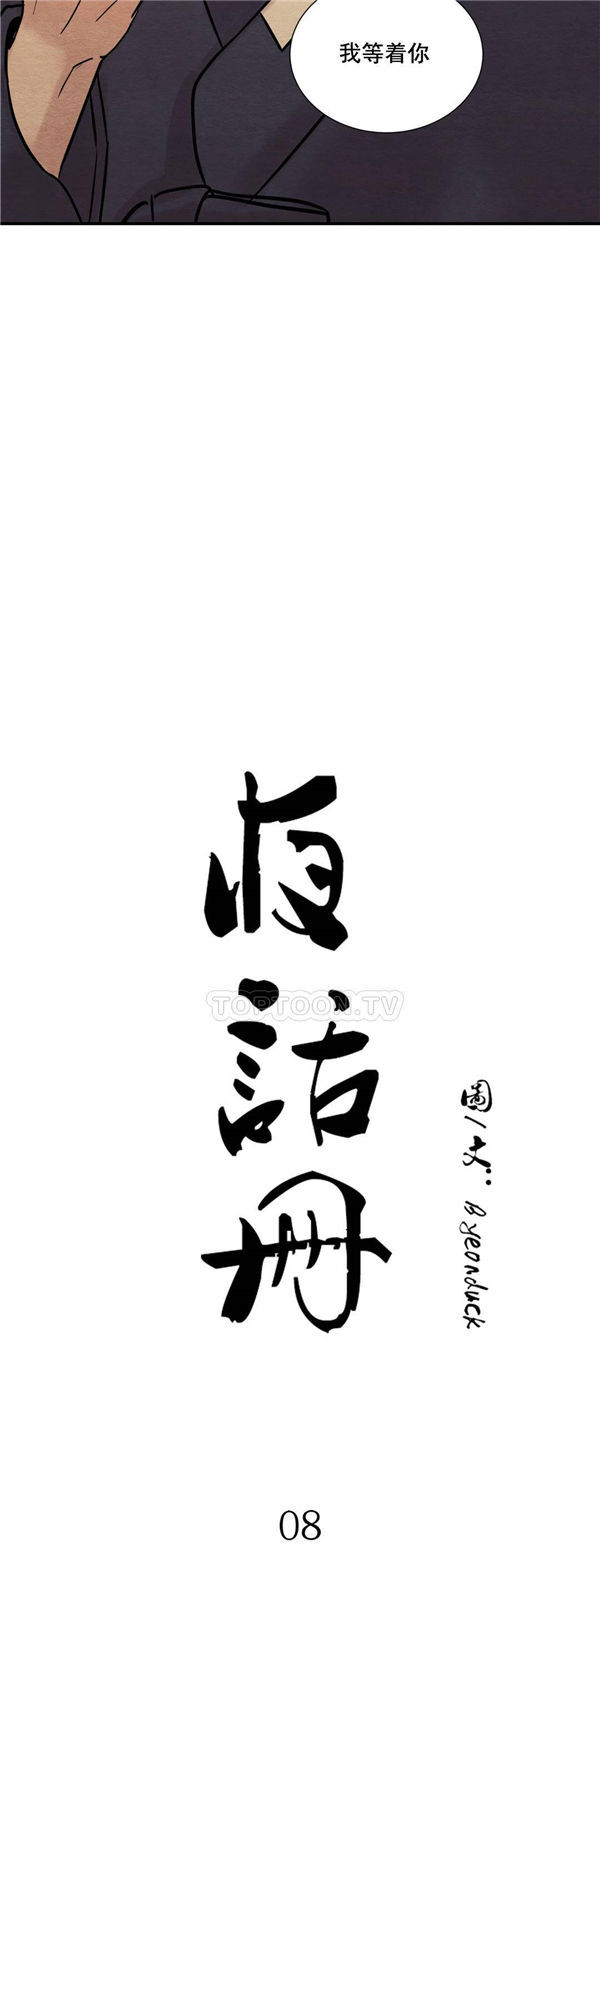 我等着你
夜話冊
TOPTOON.TV
圖/文: Byeonduck
08
TOPTOON.TV